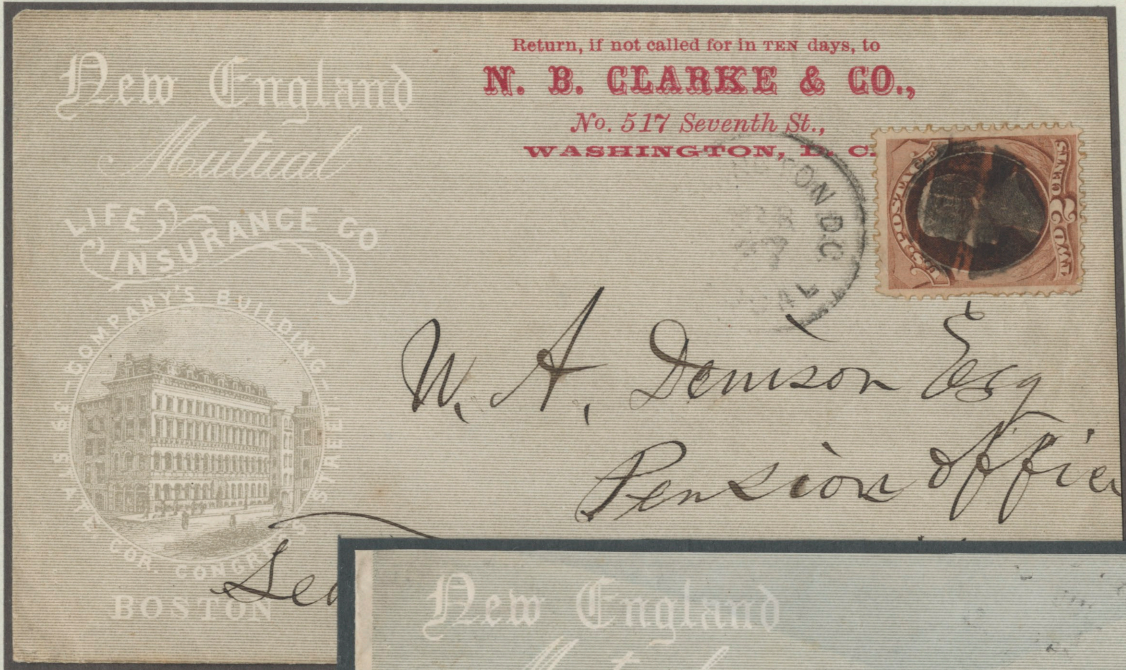 New England
Mutual
LIFE
INSURANCE CO
COMPANY'S BUILDING
39 STATE, COR. CONGRESS STREET
BOSTON
Return, if not called for in TEN days, to
N. B. CLARKE & CO.,
No. 517 Seventh St.,
WASHINGTON, D. C.
TON D.C.
U.S. POSTAGE
TWO 2 CENTS
W. A. Denison Esq
Pension Office
New England
Mutual